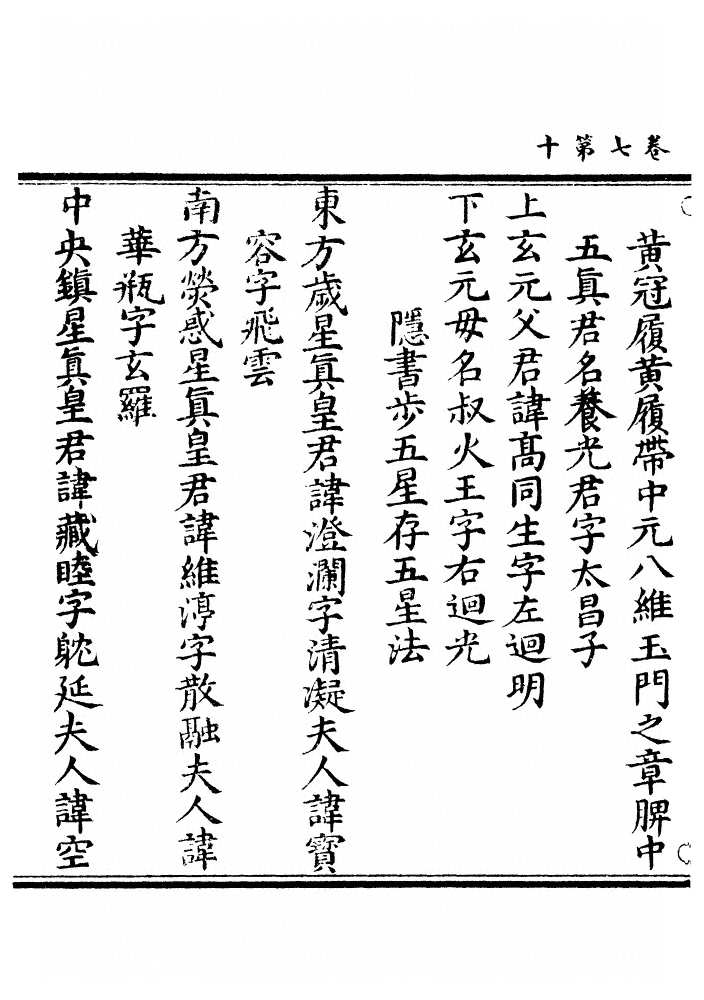 卷七第十
黃冠履黃履帶中元八維玉門之章脾中
五眞君名養光君字太昌子
上玄元父君諱髙同生字左迴明
下玄元毋名叔火王字右迴光
隱書步五星存五星法
東方歲星眞皇君諱澄瀾字清凝夫人諱寳
容字飛雲
南方熒惑星眞皇君諱維渟字散融夫人諱
華瓶字玄羅
中央鎮星眞皇君諱藏睦字躭延夫人諱空